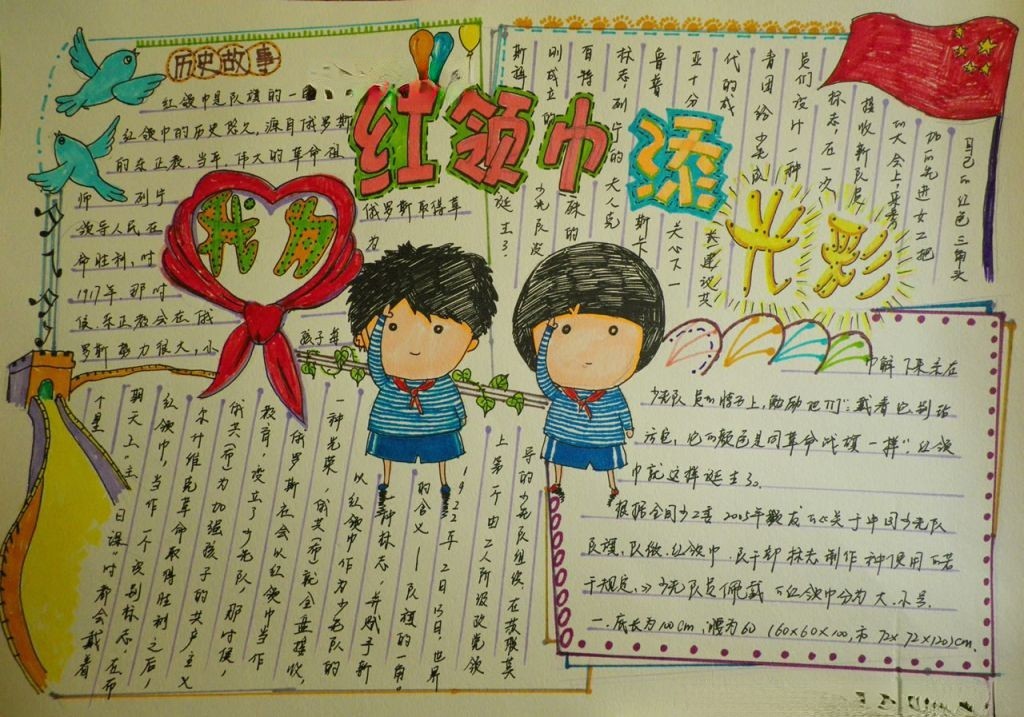 历史故事
红领巾添
光彩
我为
红领巾是队旗的一
红领巾的历史悠久,源自俄罗斯
的东正教.当年,伟大的革命祖
师 列宁
领导人民在 俄罗斯取得革
命胜利,时 为
1917年.那时
候.东正教会在俄
罗斯势力很大,小 孩子每
个星
期天上"主日课"时都会戴着
红领巾,当作一个识别标志,在布
尔什维克革命取得胜利之后,
俄共(布)为加强孩子的共产主义
教育,设立了少先队,那时候,
俄罗斯社会以红领巾当作
一种光荣,俄共(布)就全盘接收,
以红领巾作为少先队的
一种标志,并赋予新
的含义——队旗的一角.
1922年2日13日,世界
上第一个由工人阶级政党领
导的少先队组织,在莫斯
诞生了.
少先队发
关心下一
青团给少先队
员们设计一种
标志,在一次
接收新队员
的大会上,来参
加的先进女工把
自己的红色三角头
巾解下来系在
少先队员的脖子上,勉励他们:"戴着它别玷
污它,它的颜色是同革命战旗一样"红领
巾就这样诞生了。
根据全国少工委2005年颁发的《关于中国少先队
队旗、队徽.红领巾、队干部标志制作和使用的若
干规定,》少先队员佩戴的红领巾分为大.小号.
一.底长为100cm,腰为60 (60×60×100,市72×72×120)cm.